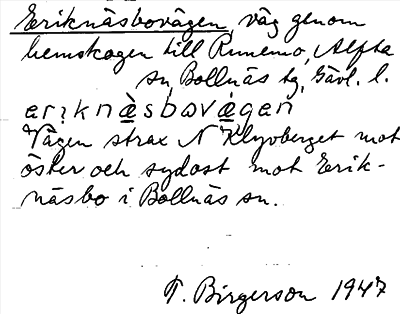 Eriknäsbovägen väg genom
hemskogen till Runemo, Alfta
sn, Bollnäs tg, Gävl. l.
erıknä̀sbovä́gen
Vägen strax N Klyvberget mot
öster och sydost mot Erik-
näsbo i Bollnäs sn.
T. Birgerson 1947